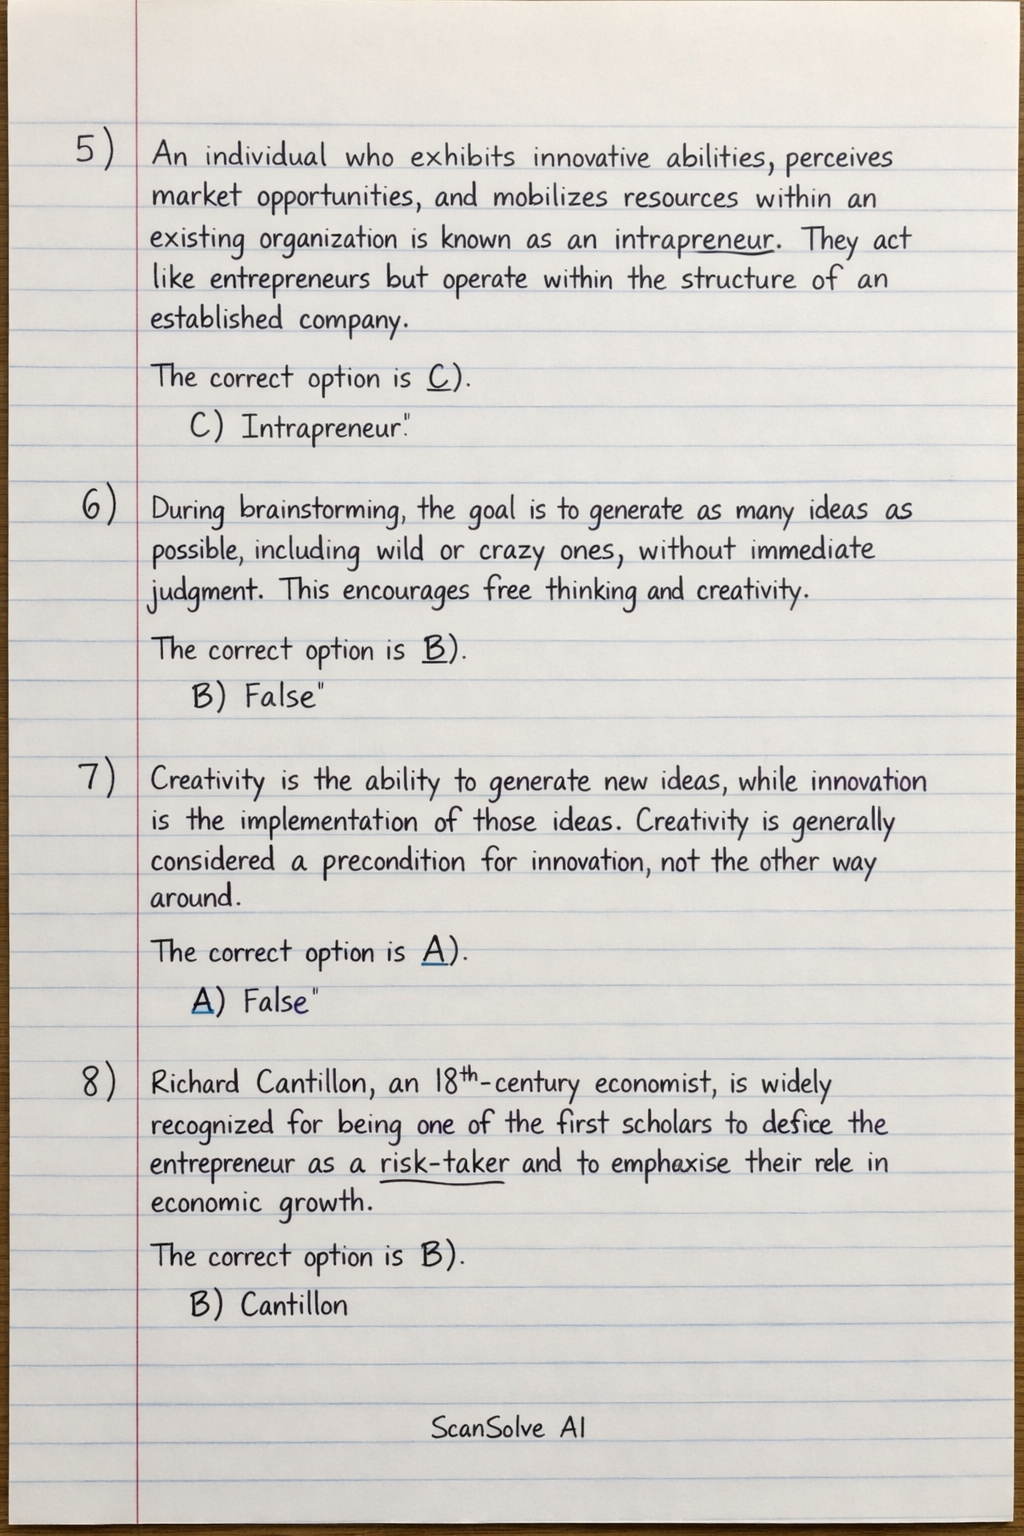 5) An individual who exhibits innovative abilities, perceives
market opportunities, and mobilizes resources within an
existing organization is known as an intrapreneur. They act
like entrepreneurs but operate within the structure of an
established company.
The correct option is C).
C) Intrapreneur."
6) During brainstorming, the goal is to generate as many ideas as
possible, including wild or crazy ones, without immediate
judgment. This encourages free thinking and creativity.
The correct option is B).
B) False"
7) Creativity is the ability to generate new ideas, while innovation
is the implementation of those ideas. Creativity is generally
considered a precondition for innovation, not the other way
around.
The correct option is A).
A) False"
8) Richard Cantillon, an 18th-century economist, is widely
recognized for being one of the first scholars to defice the
entrepreneur as a risk-taker and to emphaxise their rele in
economic growth.
The correct option is B).
B) Cantillon
ScanSolve AI